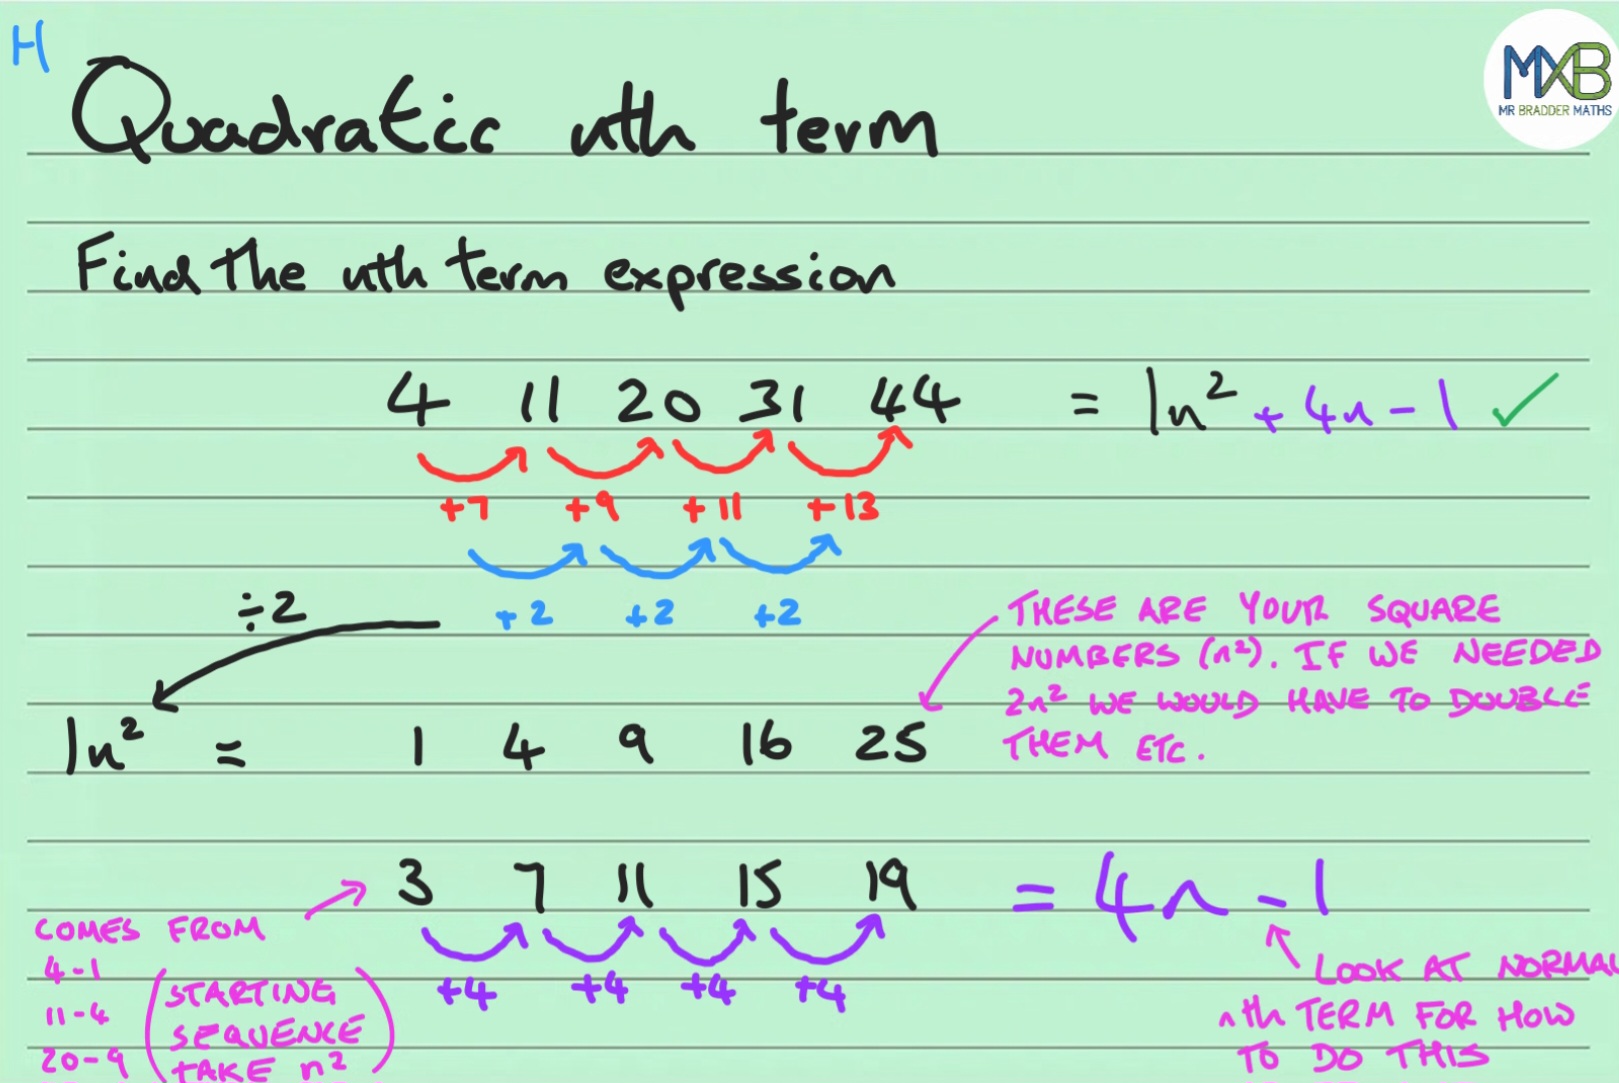 H
Quadratic nth term
MXB
MR BRADDER MATHS
Find the nth term expression
4 11 20 31 44 = 1n² + 4n - 1 ✓
+7 +9 +11 +13
÷2
+2 +2 +2
THESE ARE YOUR SQUARE
NUMBERS (n²). IF WE NEEDED
2n² WE WOULD HAVE TO DOUBLE
THEM ETC.
1n² = 1 4 9 16 25
3 7 11 15 19 = 4n - 1
+4 +4 +4 +4
COMES FROM
4-1
11-4
20-9
(STARTING
SEQUENCE
TAKE n²)
LOOK AT NORMAL
nth TERM FOR HOW
TO DO THIS